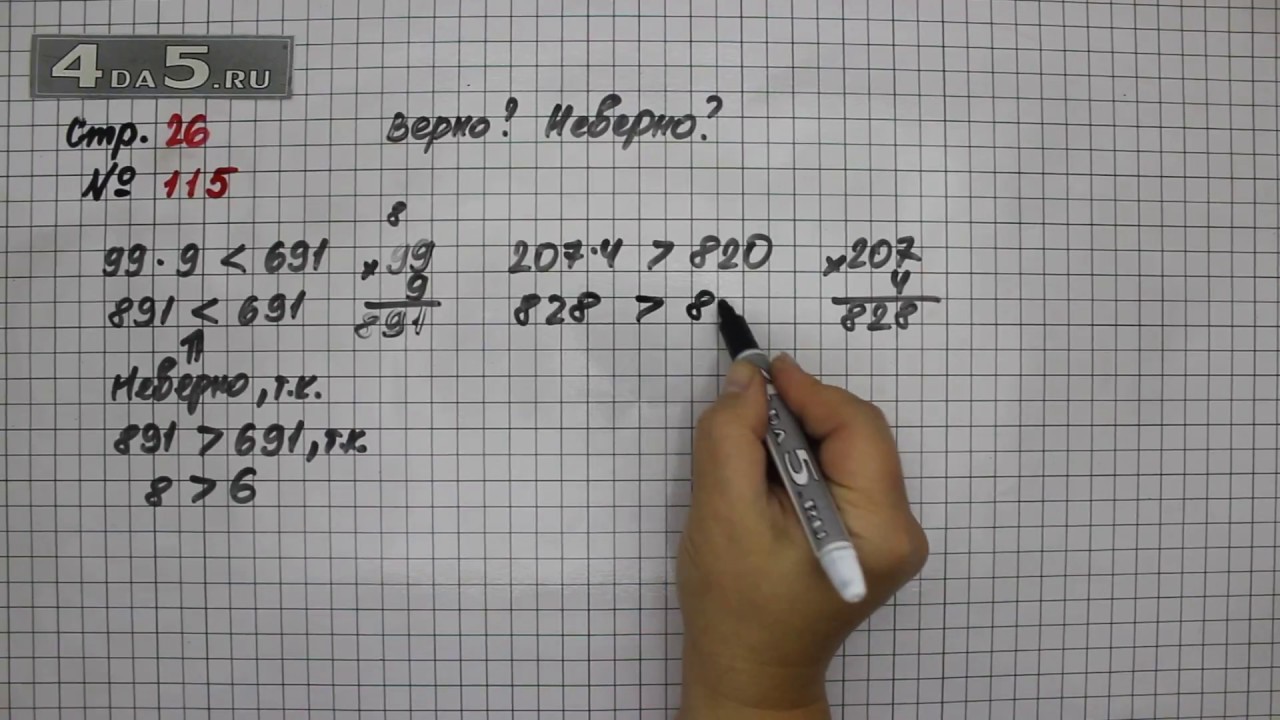 4DA5.RU
Стр. 26
№ 115
Верно? Неверно?
99 · 9 < 691
891 < 691
⇑
Неверно, т.к.
891 > 691, т.к.
8 > 6
8
× 99
9
891
207 · 4 > 820
828 > 8
× 207
4
828